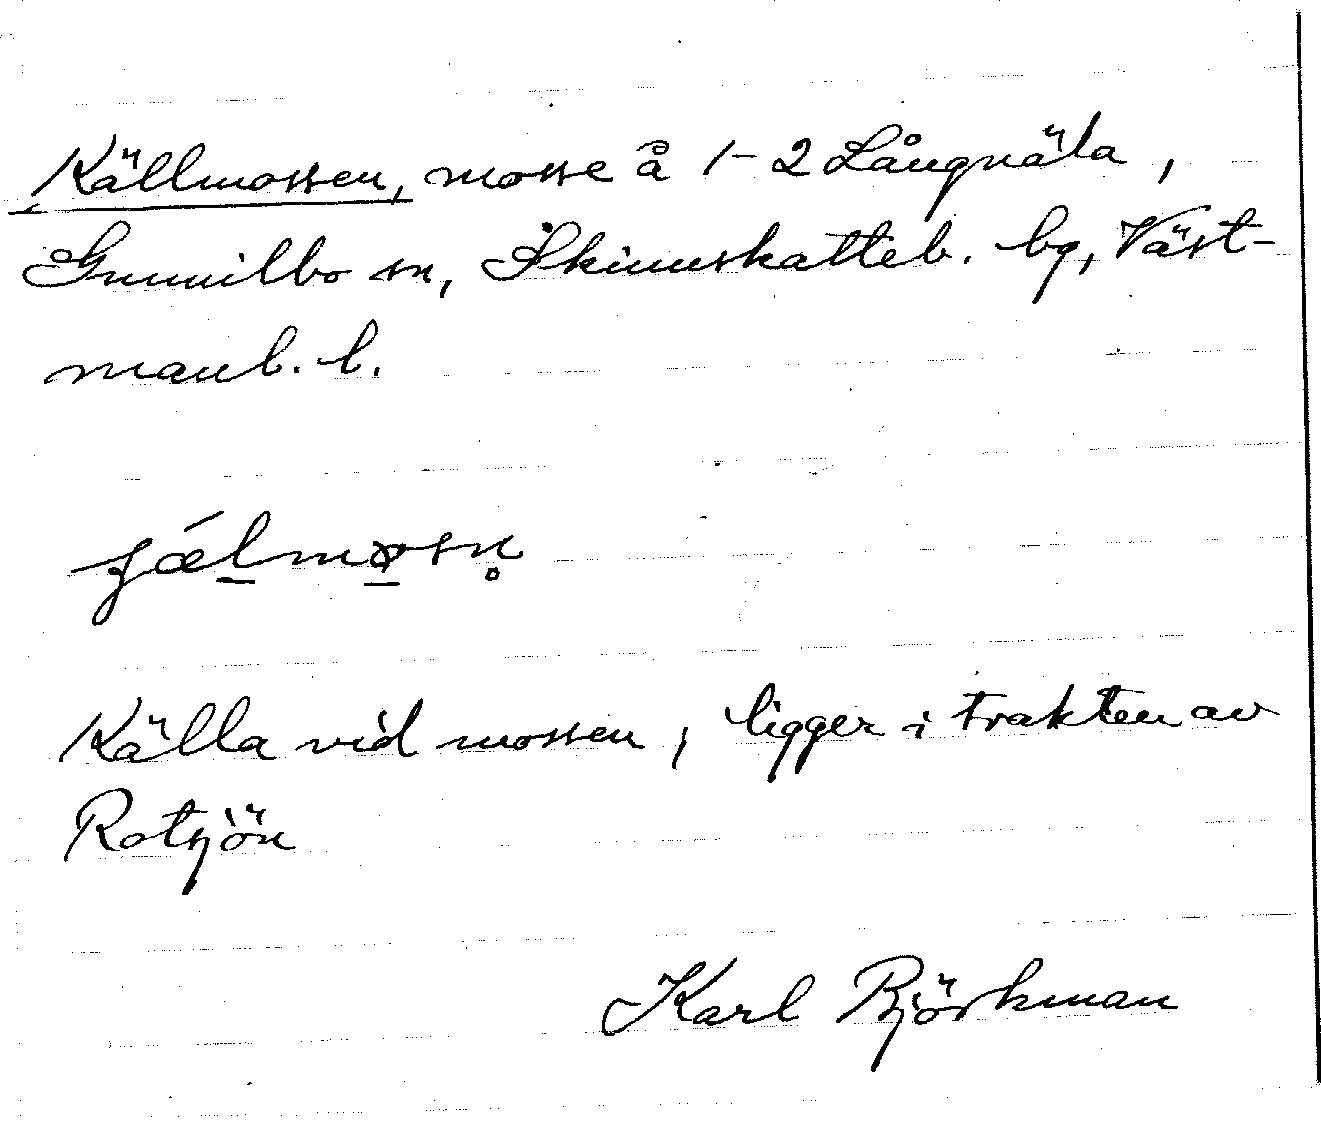 Källmossen, mosse å 1-2 Långnäla,
Gunnilbo sn, Skinnskatteb. bg, Väst-
manl. l.
Källa vid mossen, ligger i trakten av
Rotsjön
Karl Björkman